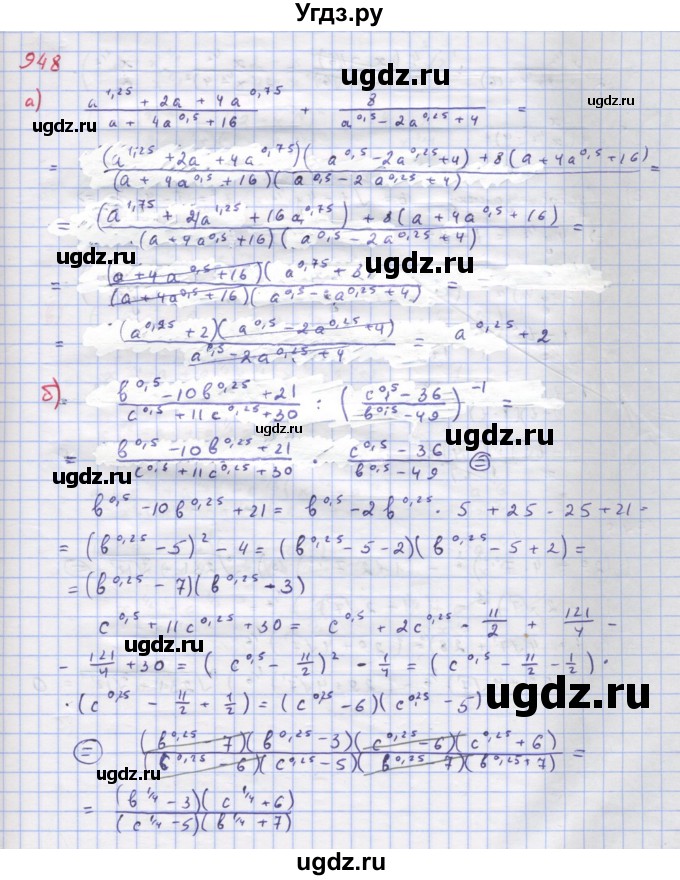 Угдз.ру
948
ugdz.ru
а) (a^1,25 + 2a + 4a^0,75)/(a + 4a^0,5 + 16) + 8/(a^0,5 - 2a^0,25 + 4) =
ugdz.ru
ugdz.ru
ugdz.ru
= ((a^1,25 + 2a + 4a^0,75)(a^0,5 - 2a^0,25 + 4) + 8(a + 4a^0,5 + 16))/((a + 4a^0,5 + 16)(a^0,5 - 2a^0,25 + 4)) =
= ((a^1,75 + 4a^1,25 + 16a^0,75) + 8(a + 4a^0,5 + 16))/((a + 4a^0,5 + 16)(a^0,5 - 2a^0,25 + 4)) =
ugdz.ru
ugdz.ru
= ((a + 4a^0,5 + 16)(a^0,75 +)/((a + 4a^0,5 + 16)(a^0,5 - 2a^0,25 + 4)) =
= ((a^0,25 + 2)(a^0,5 - 2a^0,25 + 4))/(a^0,5 - 2a^0,25 + 4) = a^0,25 + 2
ugdz.ru
б) = (b^0,5 - 10b^0,25 + 21)/(c^0,5 + 11c^0,25 + 30) : ((c^0,5 - 36)/(b^0,5 - 49))^-1 =
ugdz.ru
= (b^0,5 - 10b^0,25 + 21)/(c^0,5 + 11c^0,25 + 30) · (c^0,5 - 36)/(b^0,5 - 49) =
ugdz.ru
b^0,5 - 10b^0,25 + 21 = b^0,5 - 2b^0,25 · 5 + 25 - 25 + 21 =
ugdz.ru
= (b^0,25 - 5)^2 - 4 = (b^0,25 - 5 - 2)(b^0,25 - 5 + 2) =
= (b^0,25 - 7)(b^0,25 - 3)
ugdz.ru
c^0,5 + 11c^0,25 + 30 = c^0,5 + 2c^0,25 · 11/2 + 121/4 -
- 121/4 + 30 = (c^0,5 - 11/2)^2 - 1/4 = (c^0,5 - 11/2 - 1/2) ·
· (c^0,25 - 11/2 + 1/2) = (c^0,25 - 6)(c^0,25 - 5)
ugdz.ru
ugdz.ru
= ((b^0,25 - 7)(b^0,25 - 3)(c^0,25 - 6)(c^0,25 + 6))/((b^0,25 - 6)(c^0,25 - 5)(b^0,25 - 7)(b^0,25 + 7)) =
ugdz.ru
= ((b^1/4 - 3)(c^1/4 + 6))/((c^1/4 - 5)(b^1/4 + 7))
ugdz.ru